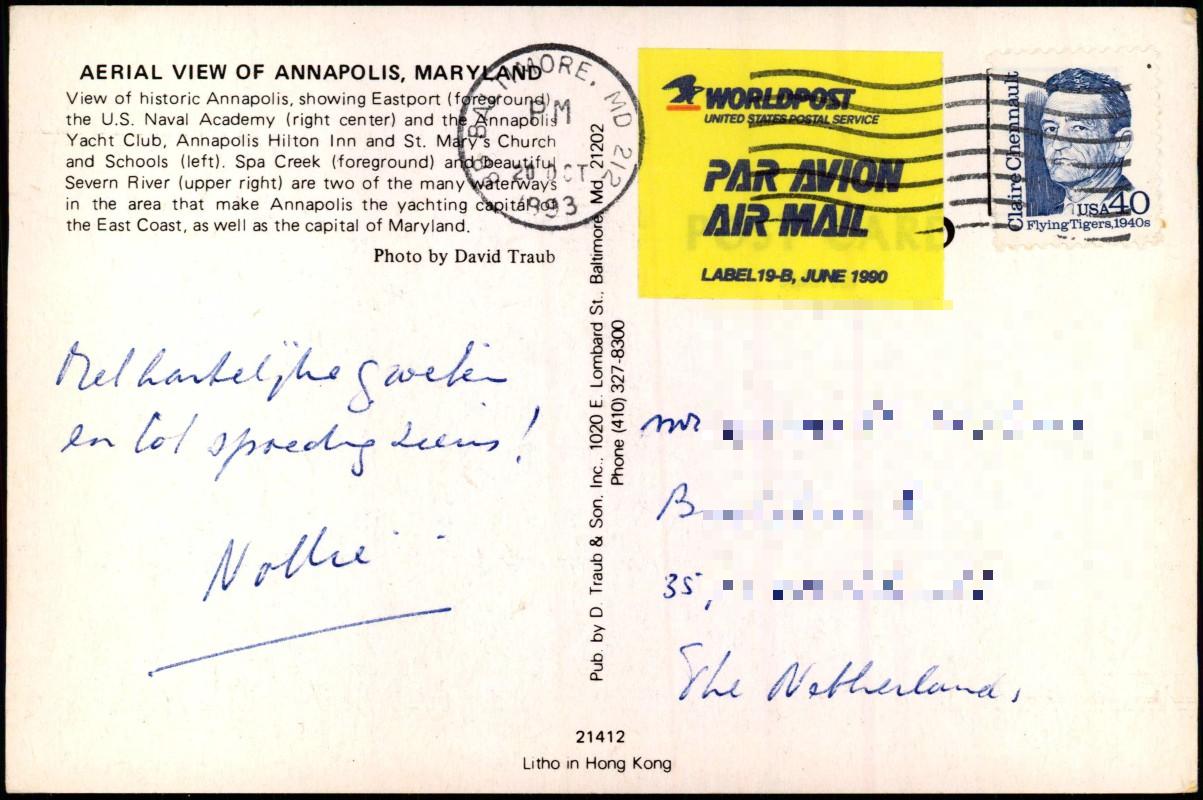 AERIAL VIEW OF ANNAPOLIS, MARYLAND
View of historic Annapolis, showing Eastport (foreground)
the U.S. Naval Academy (right center) and the Annapolis
Yacht Club, Annapolis Hilton Inn and St. Mary's Church
and Schools (left). Spa Creek (foreground) and beautiful
Severn River (upper right) are two of the many waterways
in the area that make Annapolis the yachting capital of
the East Coast, as well as the capital of Maryland.
Photo by David Traub
BALTIMORE, MD 212
PM
20 OCT
1993
WORLDPOST
UNITED STATES POSTAL SERVICE
PAR AVION
AIR MAIL
POST CARD
LABEL 19-B, JUNE 1990
Claire Chennault
USA40
Flying Tigers, 1940s
Met hartelijke groeten
en tot spoedig ziens!
Nollie
Pub. by D. Traub & Son. Inc., 1020 E. Lombard St., Baltimore, Md. 21202
Phone (410) 327-8300
mr
B
35,
The Netherlands
21412
Litho in Hong Kong